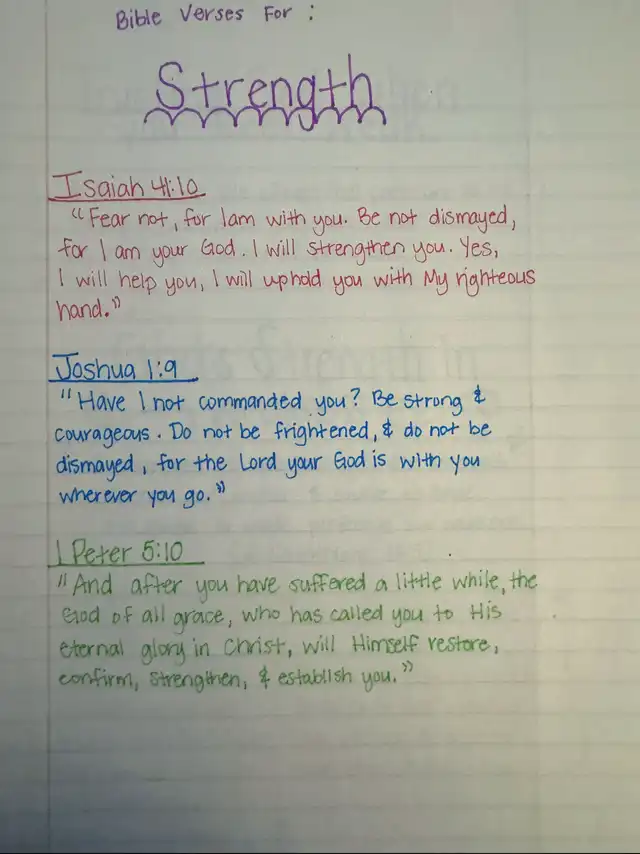 Bible Verses For :
Strength
Isaiah 41:10
"Fear not, for I am with you. Be not dismayed,
for I am your God. I will strengthen you. Yes,
I will help you, I will uphold you with My righteous
hand."
Joshua 1:9
"Have I not commanded you? Be strong &
courageous. Do not be frightened, & do not be
dismayed, for the Lord your God is with you
wherever you go."
1 Peter 5:10
"And after you have suffered a little while, the
God of all grace, who has called you to His
eternal glory in Christ, will Himself restore,
confirm, strengthen, & establish you."